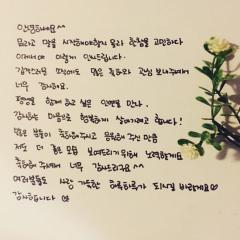 안녕하세요^^
뭐라고 말을 시작해야할지 몰라 한참을 고민하다
이제서야 이렇게 인사드립니다.
갑작스러운 소식에도 많은 축하와 관심 보내주셔서
너무 감사해요.
평생을 함께 하고 싶은 인연을 만나,
감사하는 마음으로 행복하게 살아가려고 합니다!
많은 분들이 축하해주시고 응원해 주신 만큼
저도 더 좋은 모습 보여드리기위해 노력할게요
축하해 주셔서 너무 감사드리구요^^
여러분들도 사랑 가득한 하루하루가 되시길 바랄게요♡
감사합니다♡